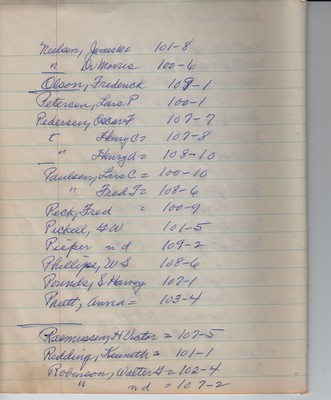 Nielsen, 101-8
" Dr Morris 100-6
Olson, Frederick 109-1
Petersen, Lars P 100-1
Pedersen, Oscar F 107-7
Henry C= 107-8
" Henry A= 108-10
Paulsen, Lars C= 100-10
" Fred T= 108-6
Peck, Fred = 100-9
Pickell, G W 101-5
Pieper n d 109-2
Phillips, W S 108-6
Pounds, S Harvey 107-1
Pratt, Anna= 103-4
Rasmussen, H Victor = 107-5
Redding, Kenneth = 101-1
Robinson, Walter G = 102-4
" n d = 107-2